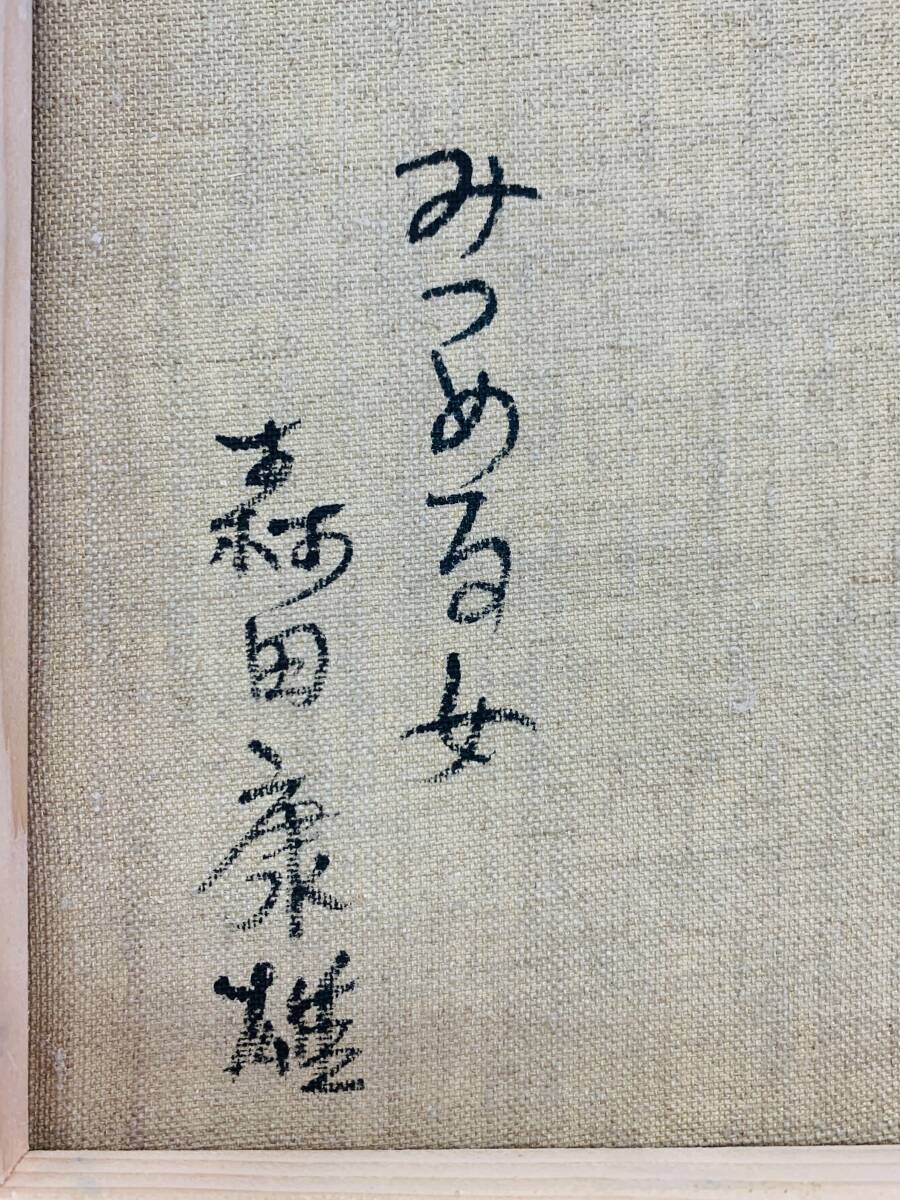 みつめる女
森田康雄